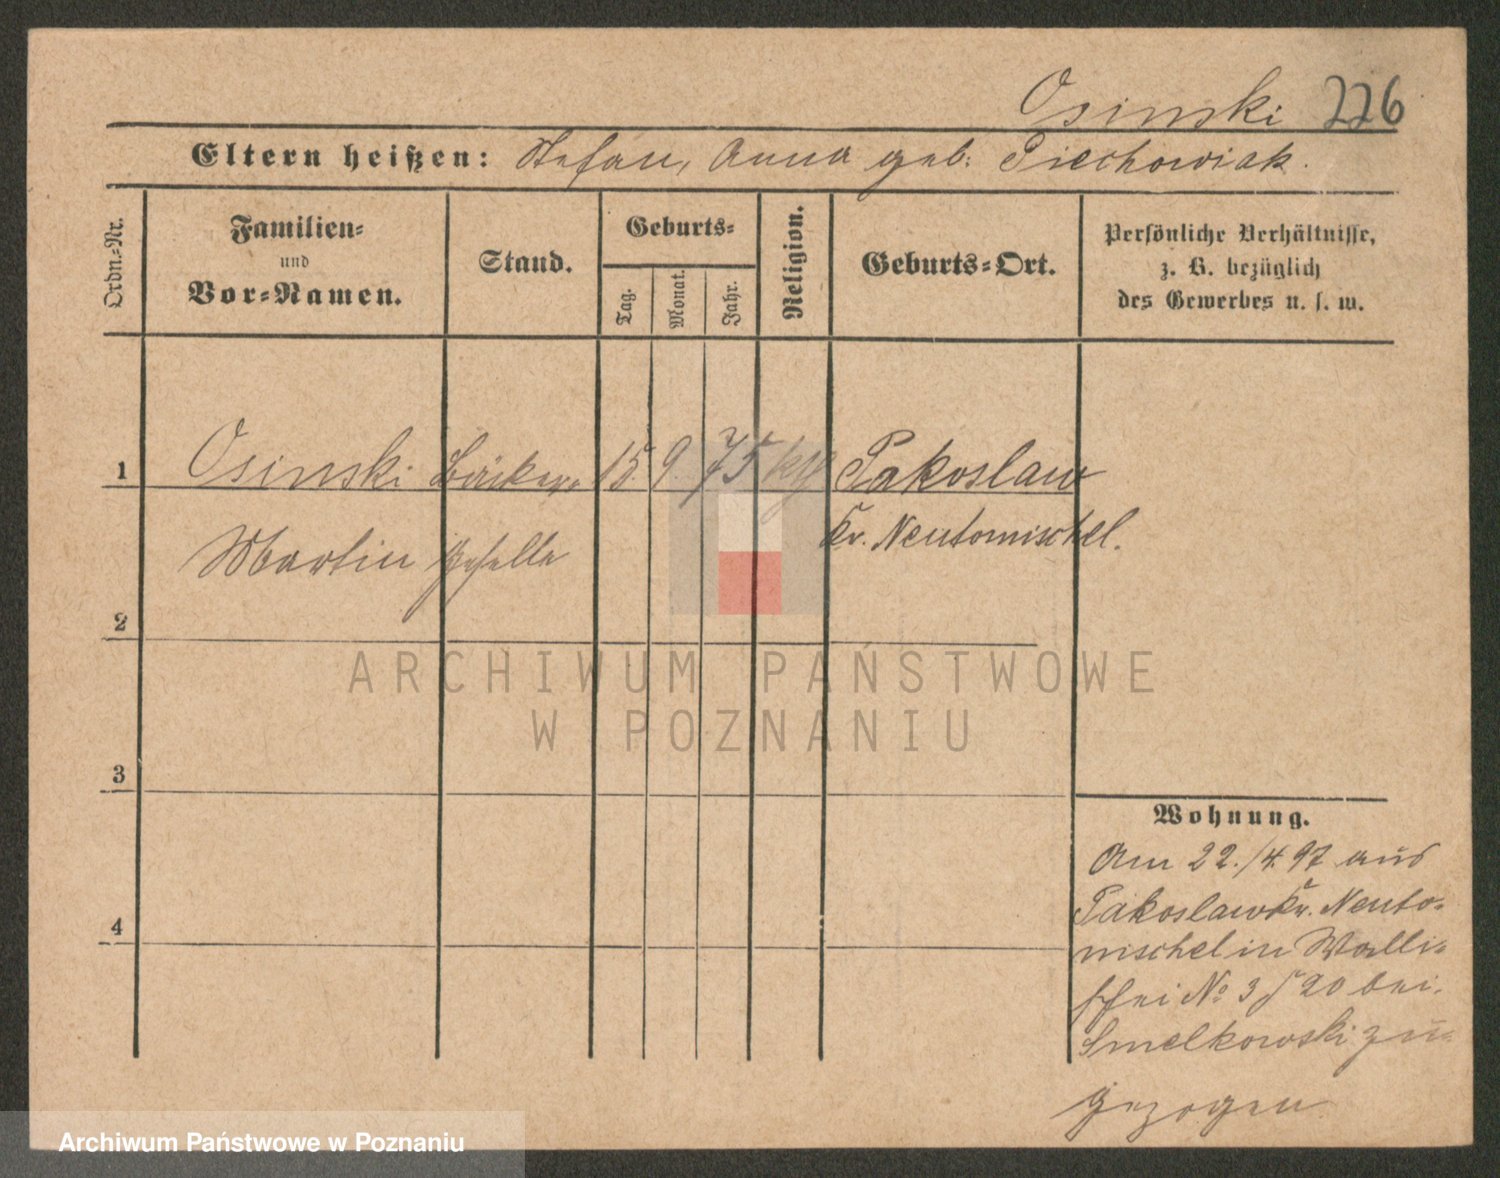 Osinski 226
Eltern heißen: Stefan, Anna geb. Piechowiak.
Ordn.-Nr.
Familien-
und
Vor-Namen.
Stand.
Geburts-
Tag.
Monat.
Jahr.
Religion.
Geburts-Ort.
Persönliche Verhältnisse,
z. B. bezüglich
des Gewerbes u. s. w.
1 Osinski Bäcker- 15. 9. 75 Pakoslaw
Martin geselle Kr. Neutomischel.
2
ARCHIWUM PAŃSTWOWE
W POZNANIU
3
Wohnung.
Am 22./4. 97 aus
Pakoslaw Kr. Neuto-
4
mischel in Walli-
schei No 3 / 20 bei
Smelkowski zu-
gezogen
Archiwum Państwowe w Poznaniu